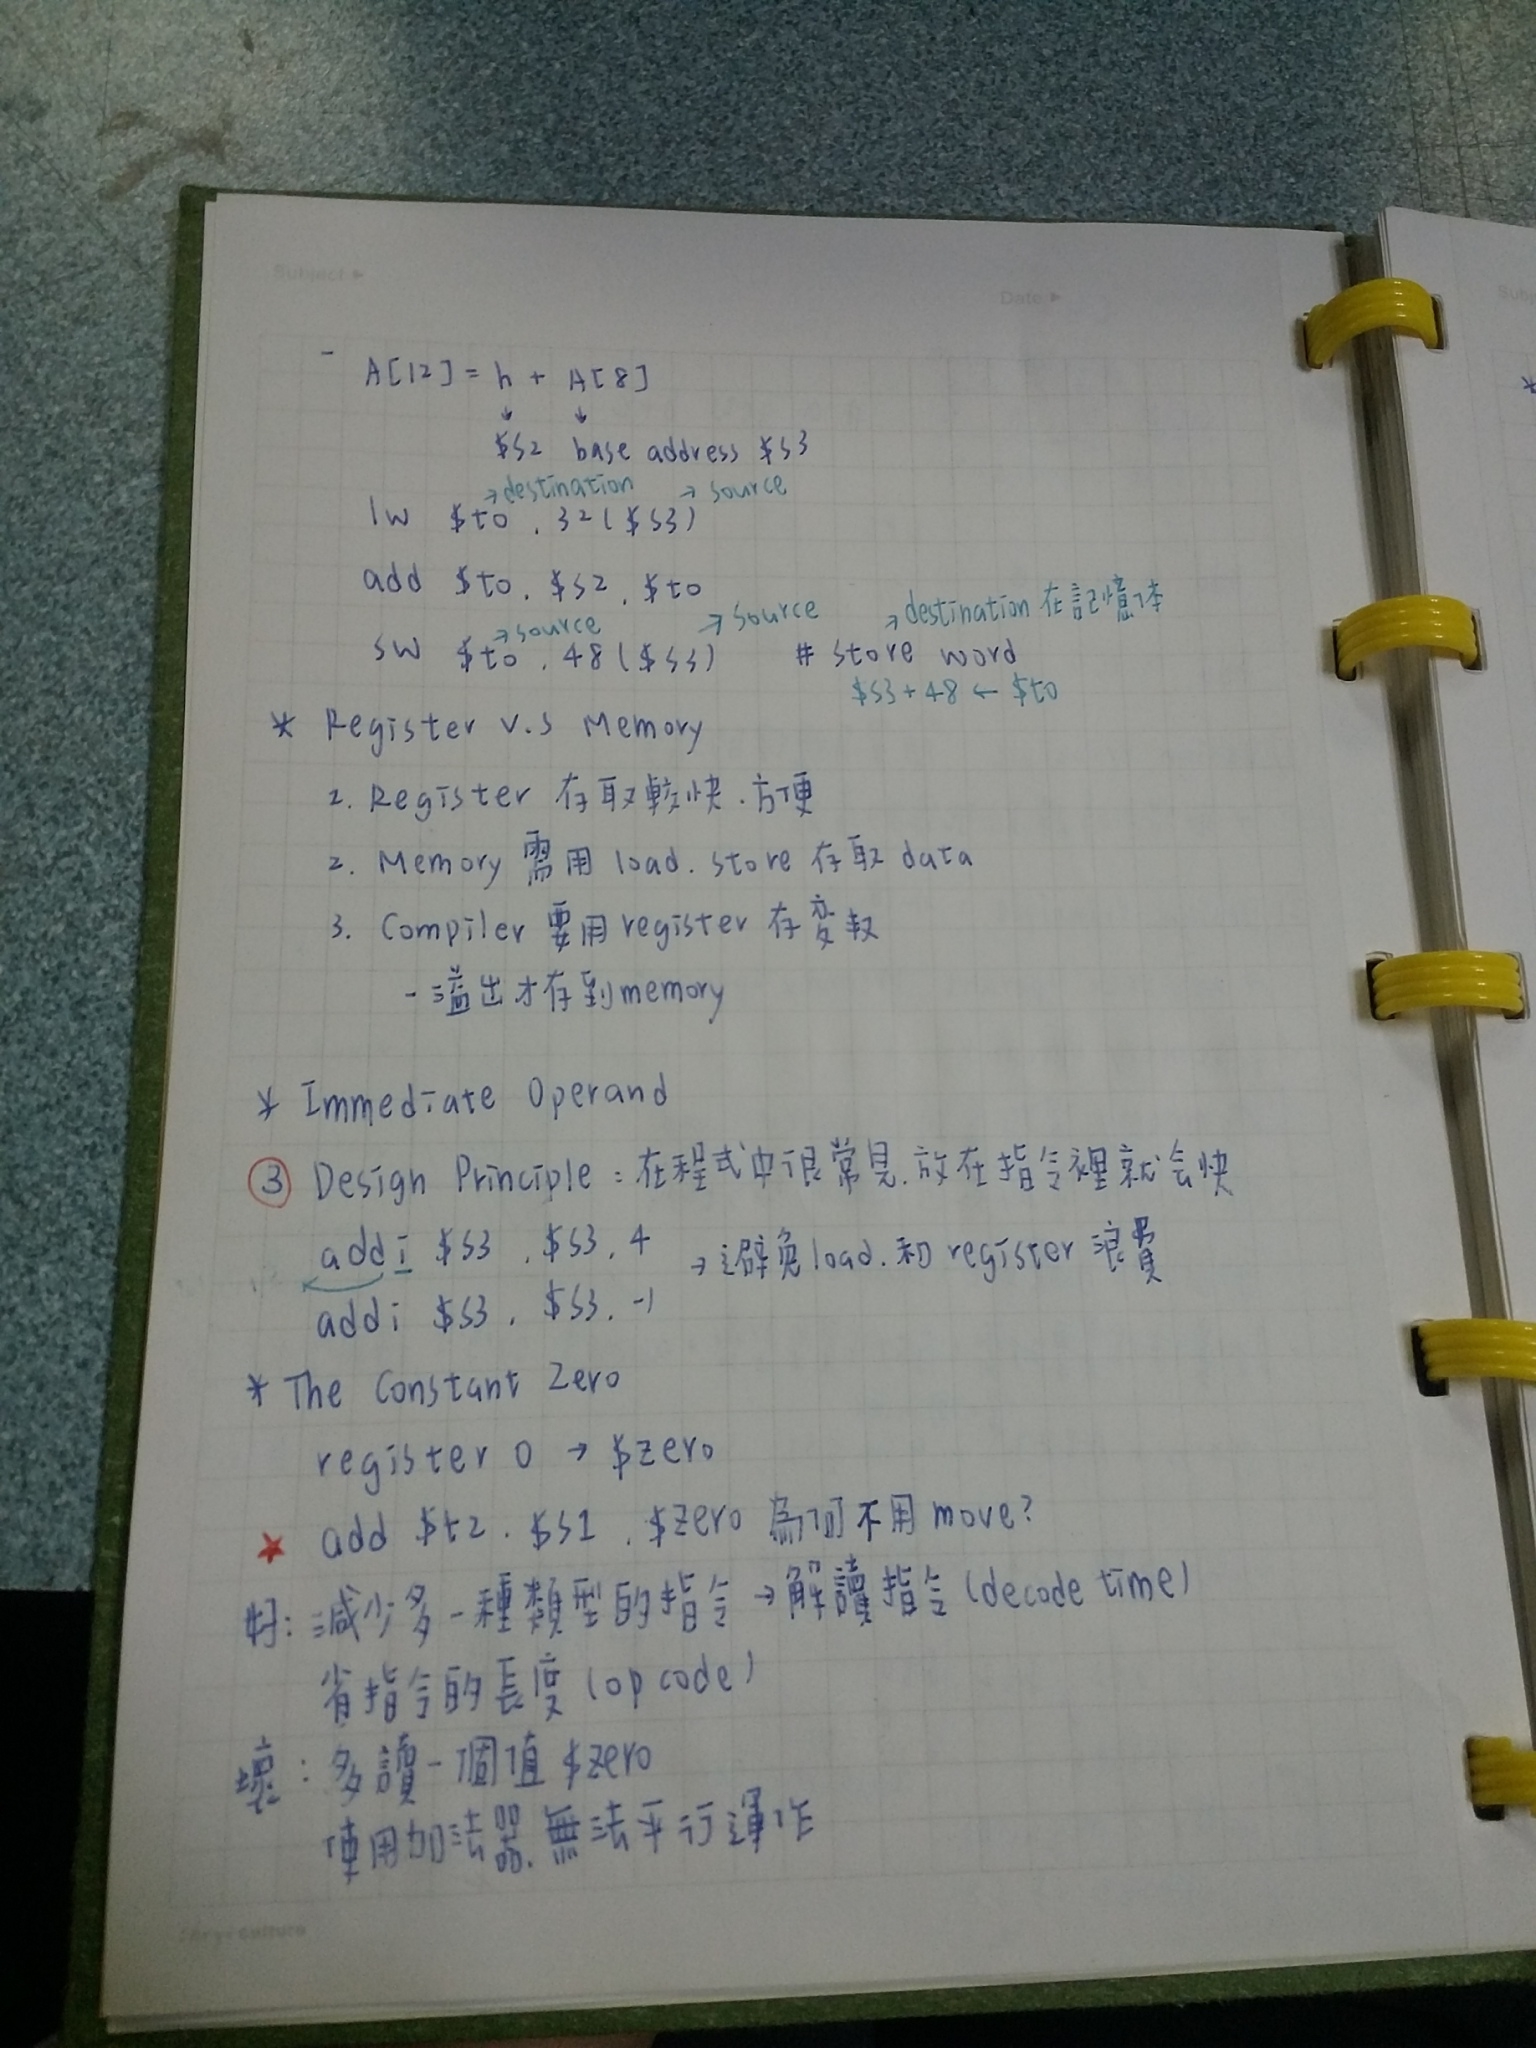 Subject ▸
Date ▸
- A[12] = h + A[8]
↓ ↓
$s2 base address $s3
→destination → source
lw $t0 . 32($s3)
add $t0 . $s2 . $t0
→source → source → destination 在記憶体
sw $t0 . 48($s3) # store word
$s3+48 ← $t0
* Register v.s Memory
1. Register 存取較快.方便
2. Memory 需用 load. store 存取 data
3. Compiler 要用 register 存变数
- 溢出才存到 memory
* Immediate Operand
③ Design Principle : 在程式中很常見.放在指令裡就会快
addi $s3 . $s3 . 4 → 避免 load. 和 register 浪費
addi $s3 . $s3 . -1
* The Constant Zero
register 0 → $zero
★ add $t2 . $s1 . $zero 為何不用 move?
好: 減少多一種類型的指令 → 解讀指令 (decode time)
省指令的長度 (op code)
壞: 多讀一個值 $zero
使用加法器.無法平行運作